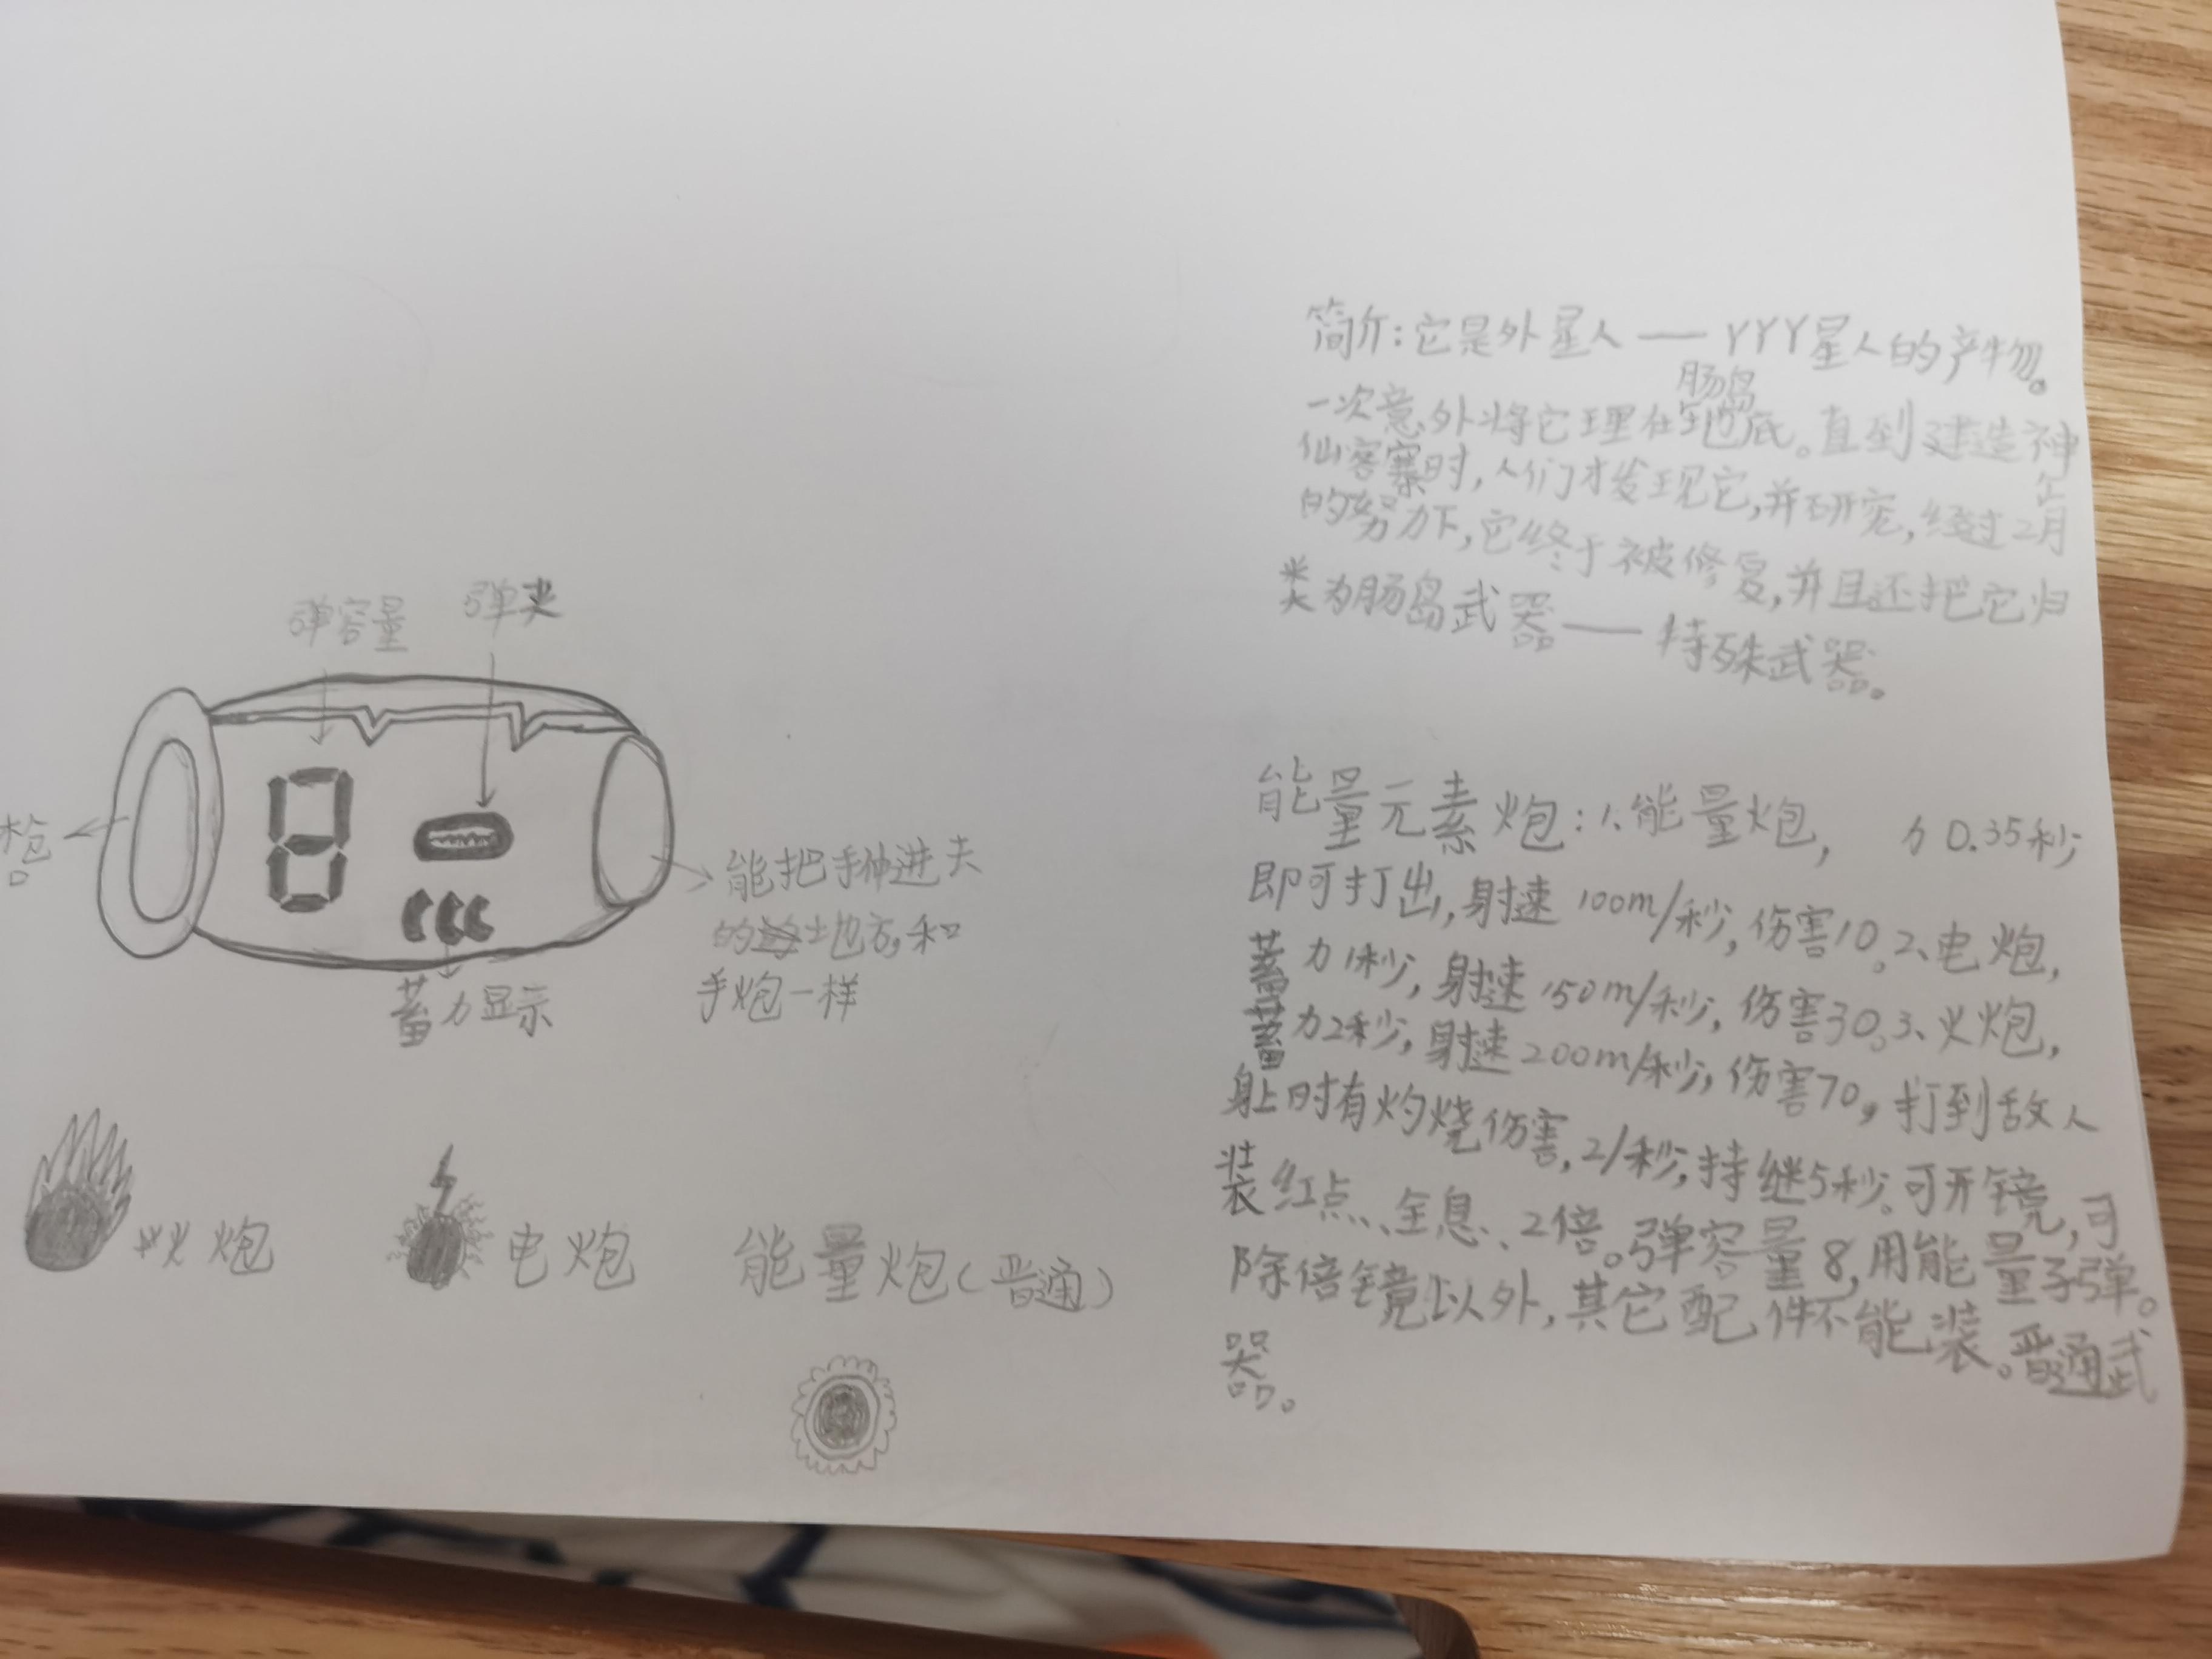 简介:它是外星人——YYY星人的产物。
肠岛
一次意外将它埋在地底。直到建造神
仙客寨时,人们才发现它,并研究,经过2个月
的努力下,它终于被修复,并且还把它归
类为肠岛武器——特殊武器。
弹容量 弹夹
8
枪口
能把手伸进去
的地方,和
手炮一样
蓄力显示
火炮
电炮
能量炮(普通)
能量元素炮:1、能量炮, 力0.35秒
即可打出,射速100m/秒,伤害10。2、电炮,
蓄力1秒,射速150m/秒,伤害30。3、火炮,
蓄力2秒,射速200m/秒,伤害70,打到敌人
身上时有灼烧伤害,2/秒,持继5秒。可开镜,可
装红点、全息、2倍。弹容量8,用能量子弹。
除倍镜以外,其它配件不能装。普通武
器。